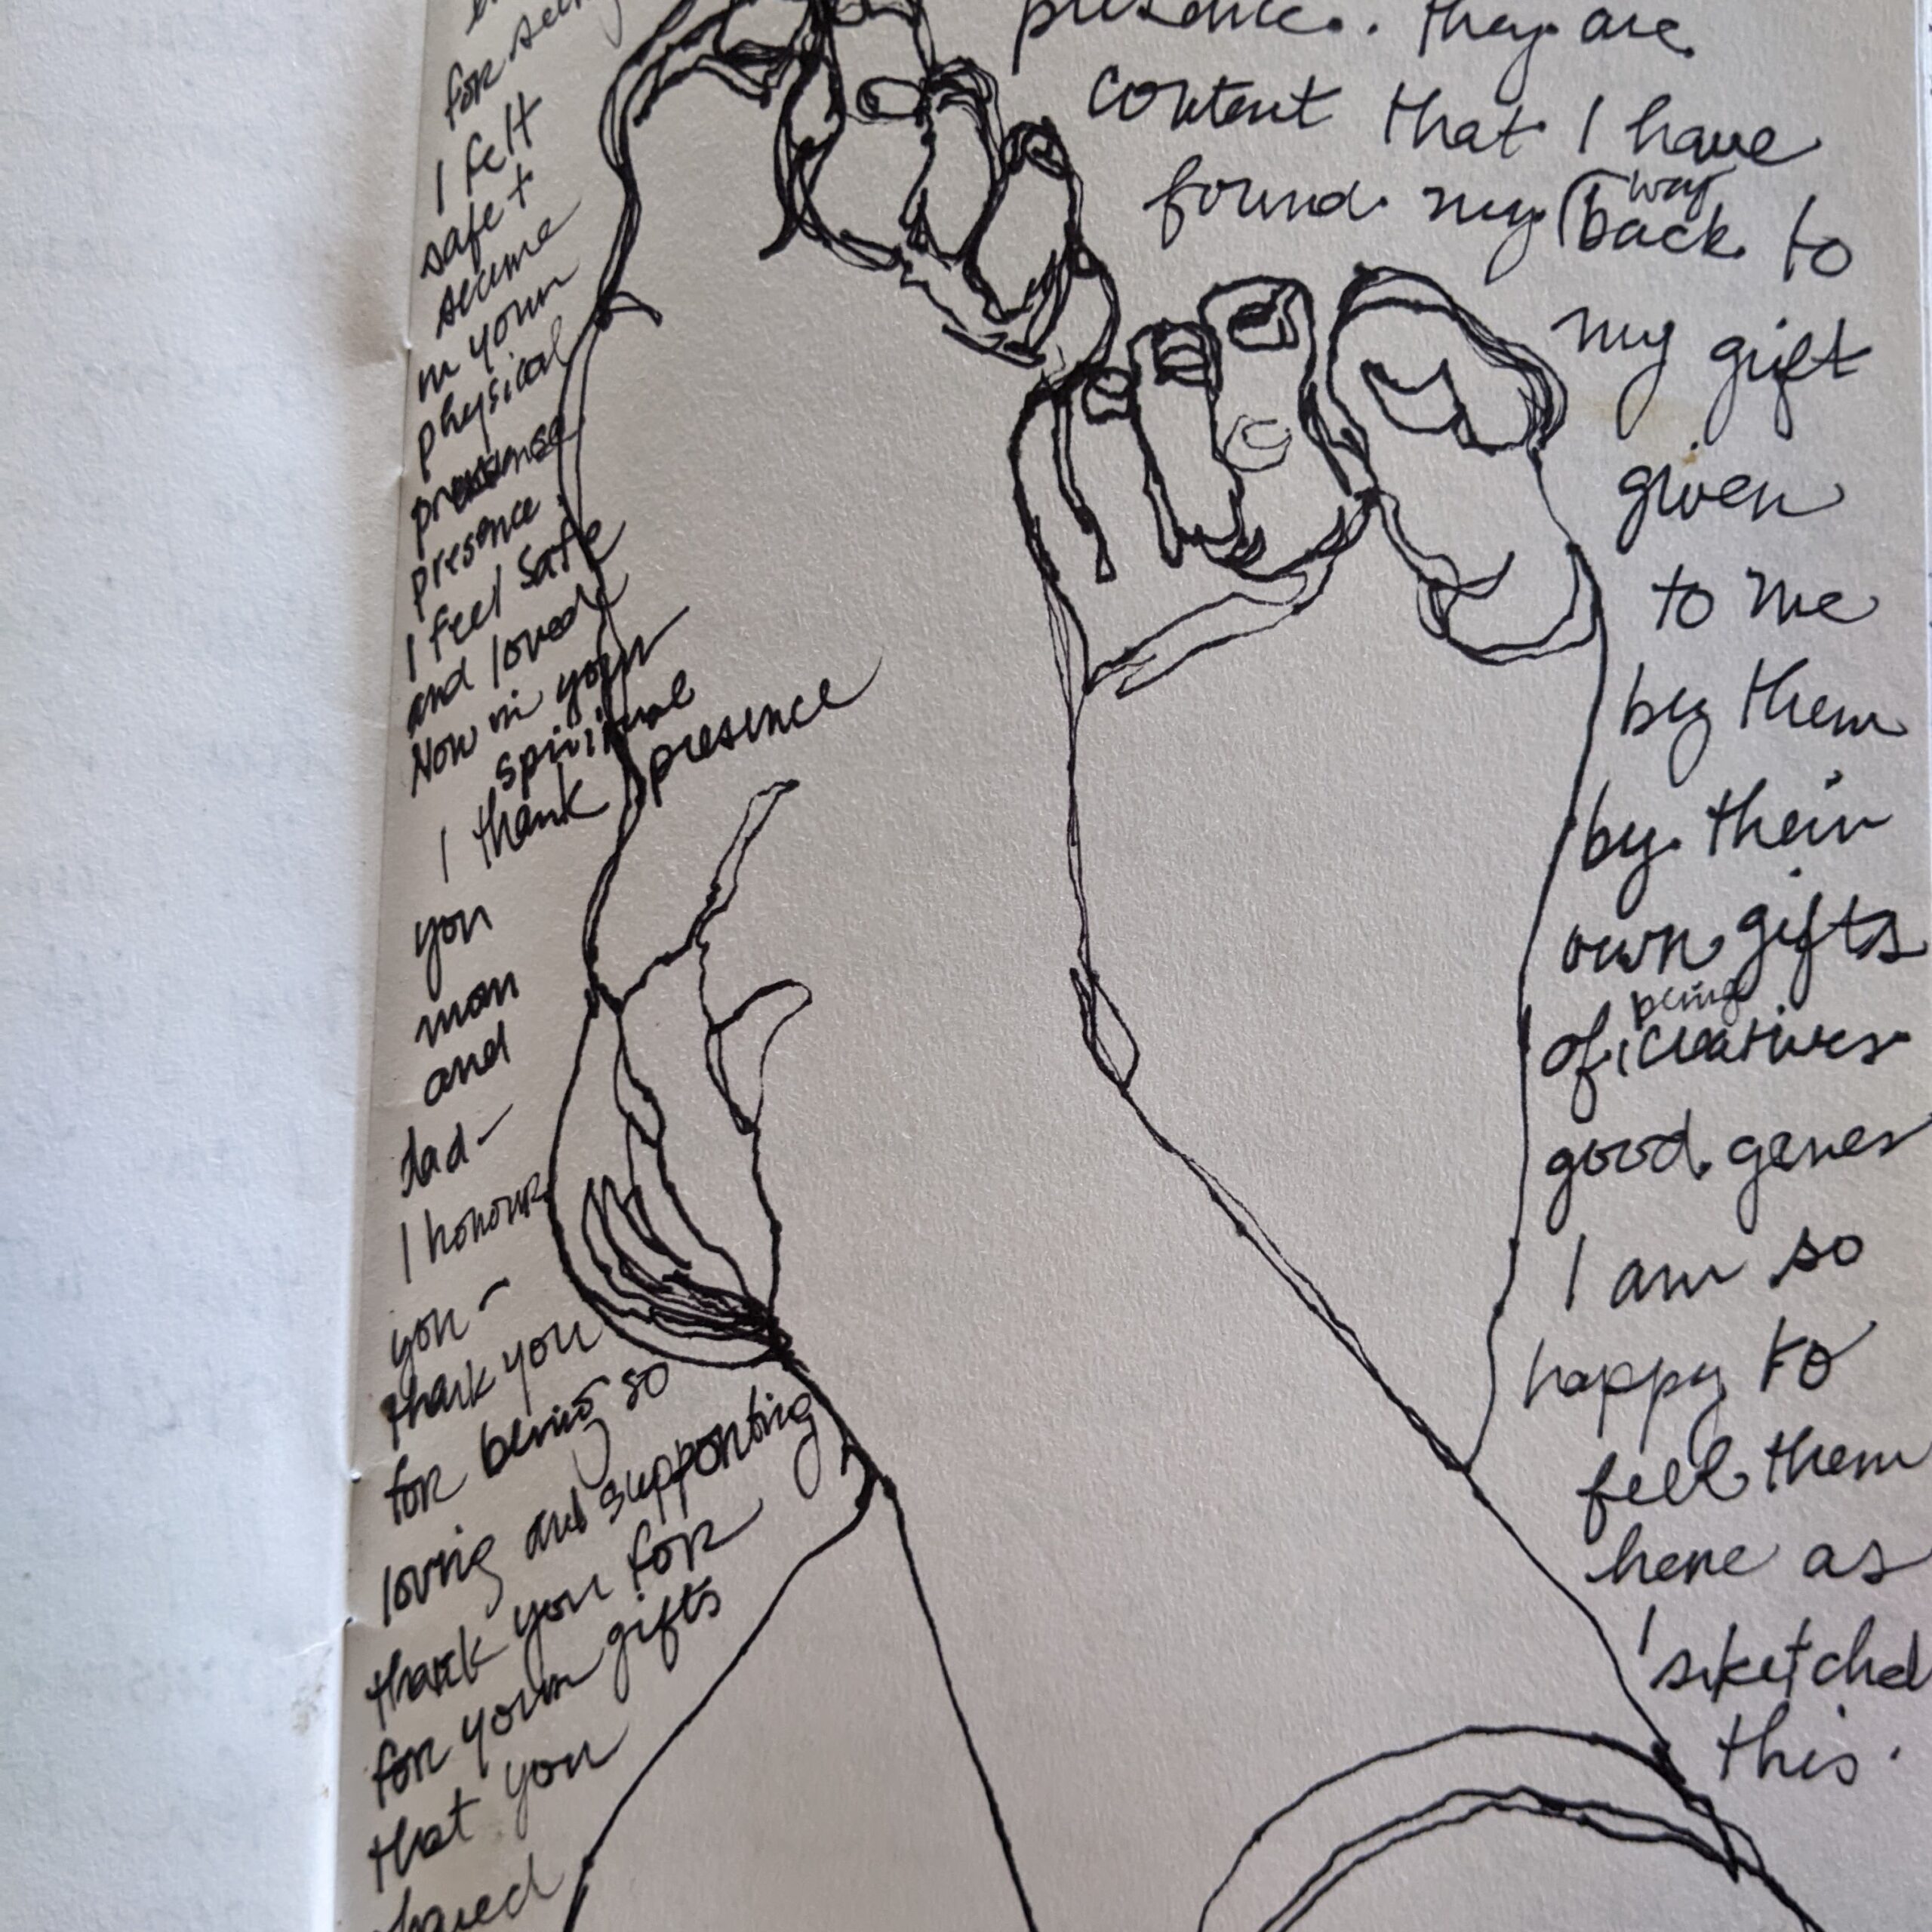 for
I felt
safe +
secure
in your
physical
presence
I feel safe
and loved
Now in your
spiritual
presence
I thank
you
mom
and
dad-
I honour
you -
thank you
for being so
loving and supporting
thank you for
for your gifts
that you
shared
presence. they are
content that I have
way
found my back to
my gift
given
to me
by them
by their
own gifts
being
of creatives
good genes
I am so
happy to
feel them
here as
I sketched
this.